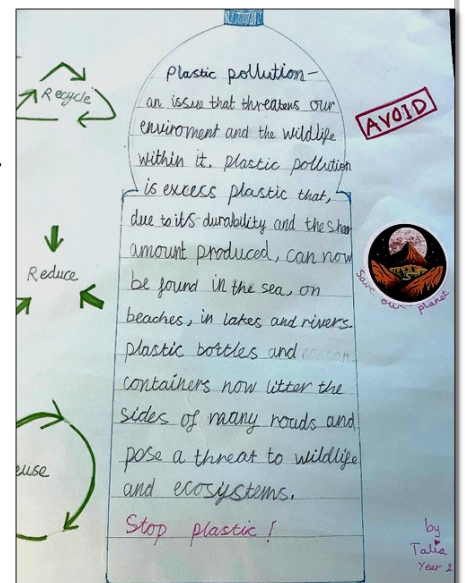 Recycle
Plastic pollution-
an issue that threatens our
enviroment and the wildlife
within it. plastic pollution
is excess plastic that,
due to its durability and the shear
amount produced, can now
be found in the sea, on
beaches, in lakes and rivers.
plastic bottles and
containers now litter the
sides of many roads and
pose a threat to wildlife
and ecosystems.
Stop plastic!
AVOID
Save our planet
Reduce
euse
by
Talia
Year 2